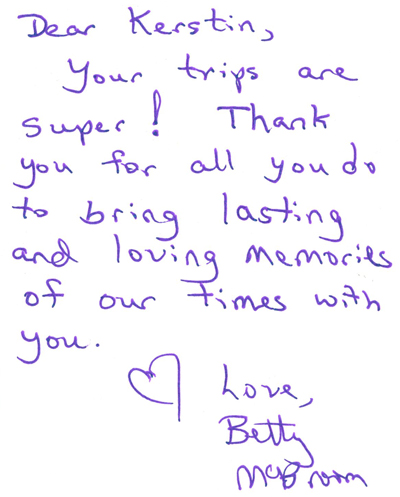 Dear Kerstin,
Your trips are
super! Thank
you for all you do
to bring lasting
and loving memories
of our times with
you.
Love,
Betty
McBroom